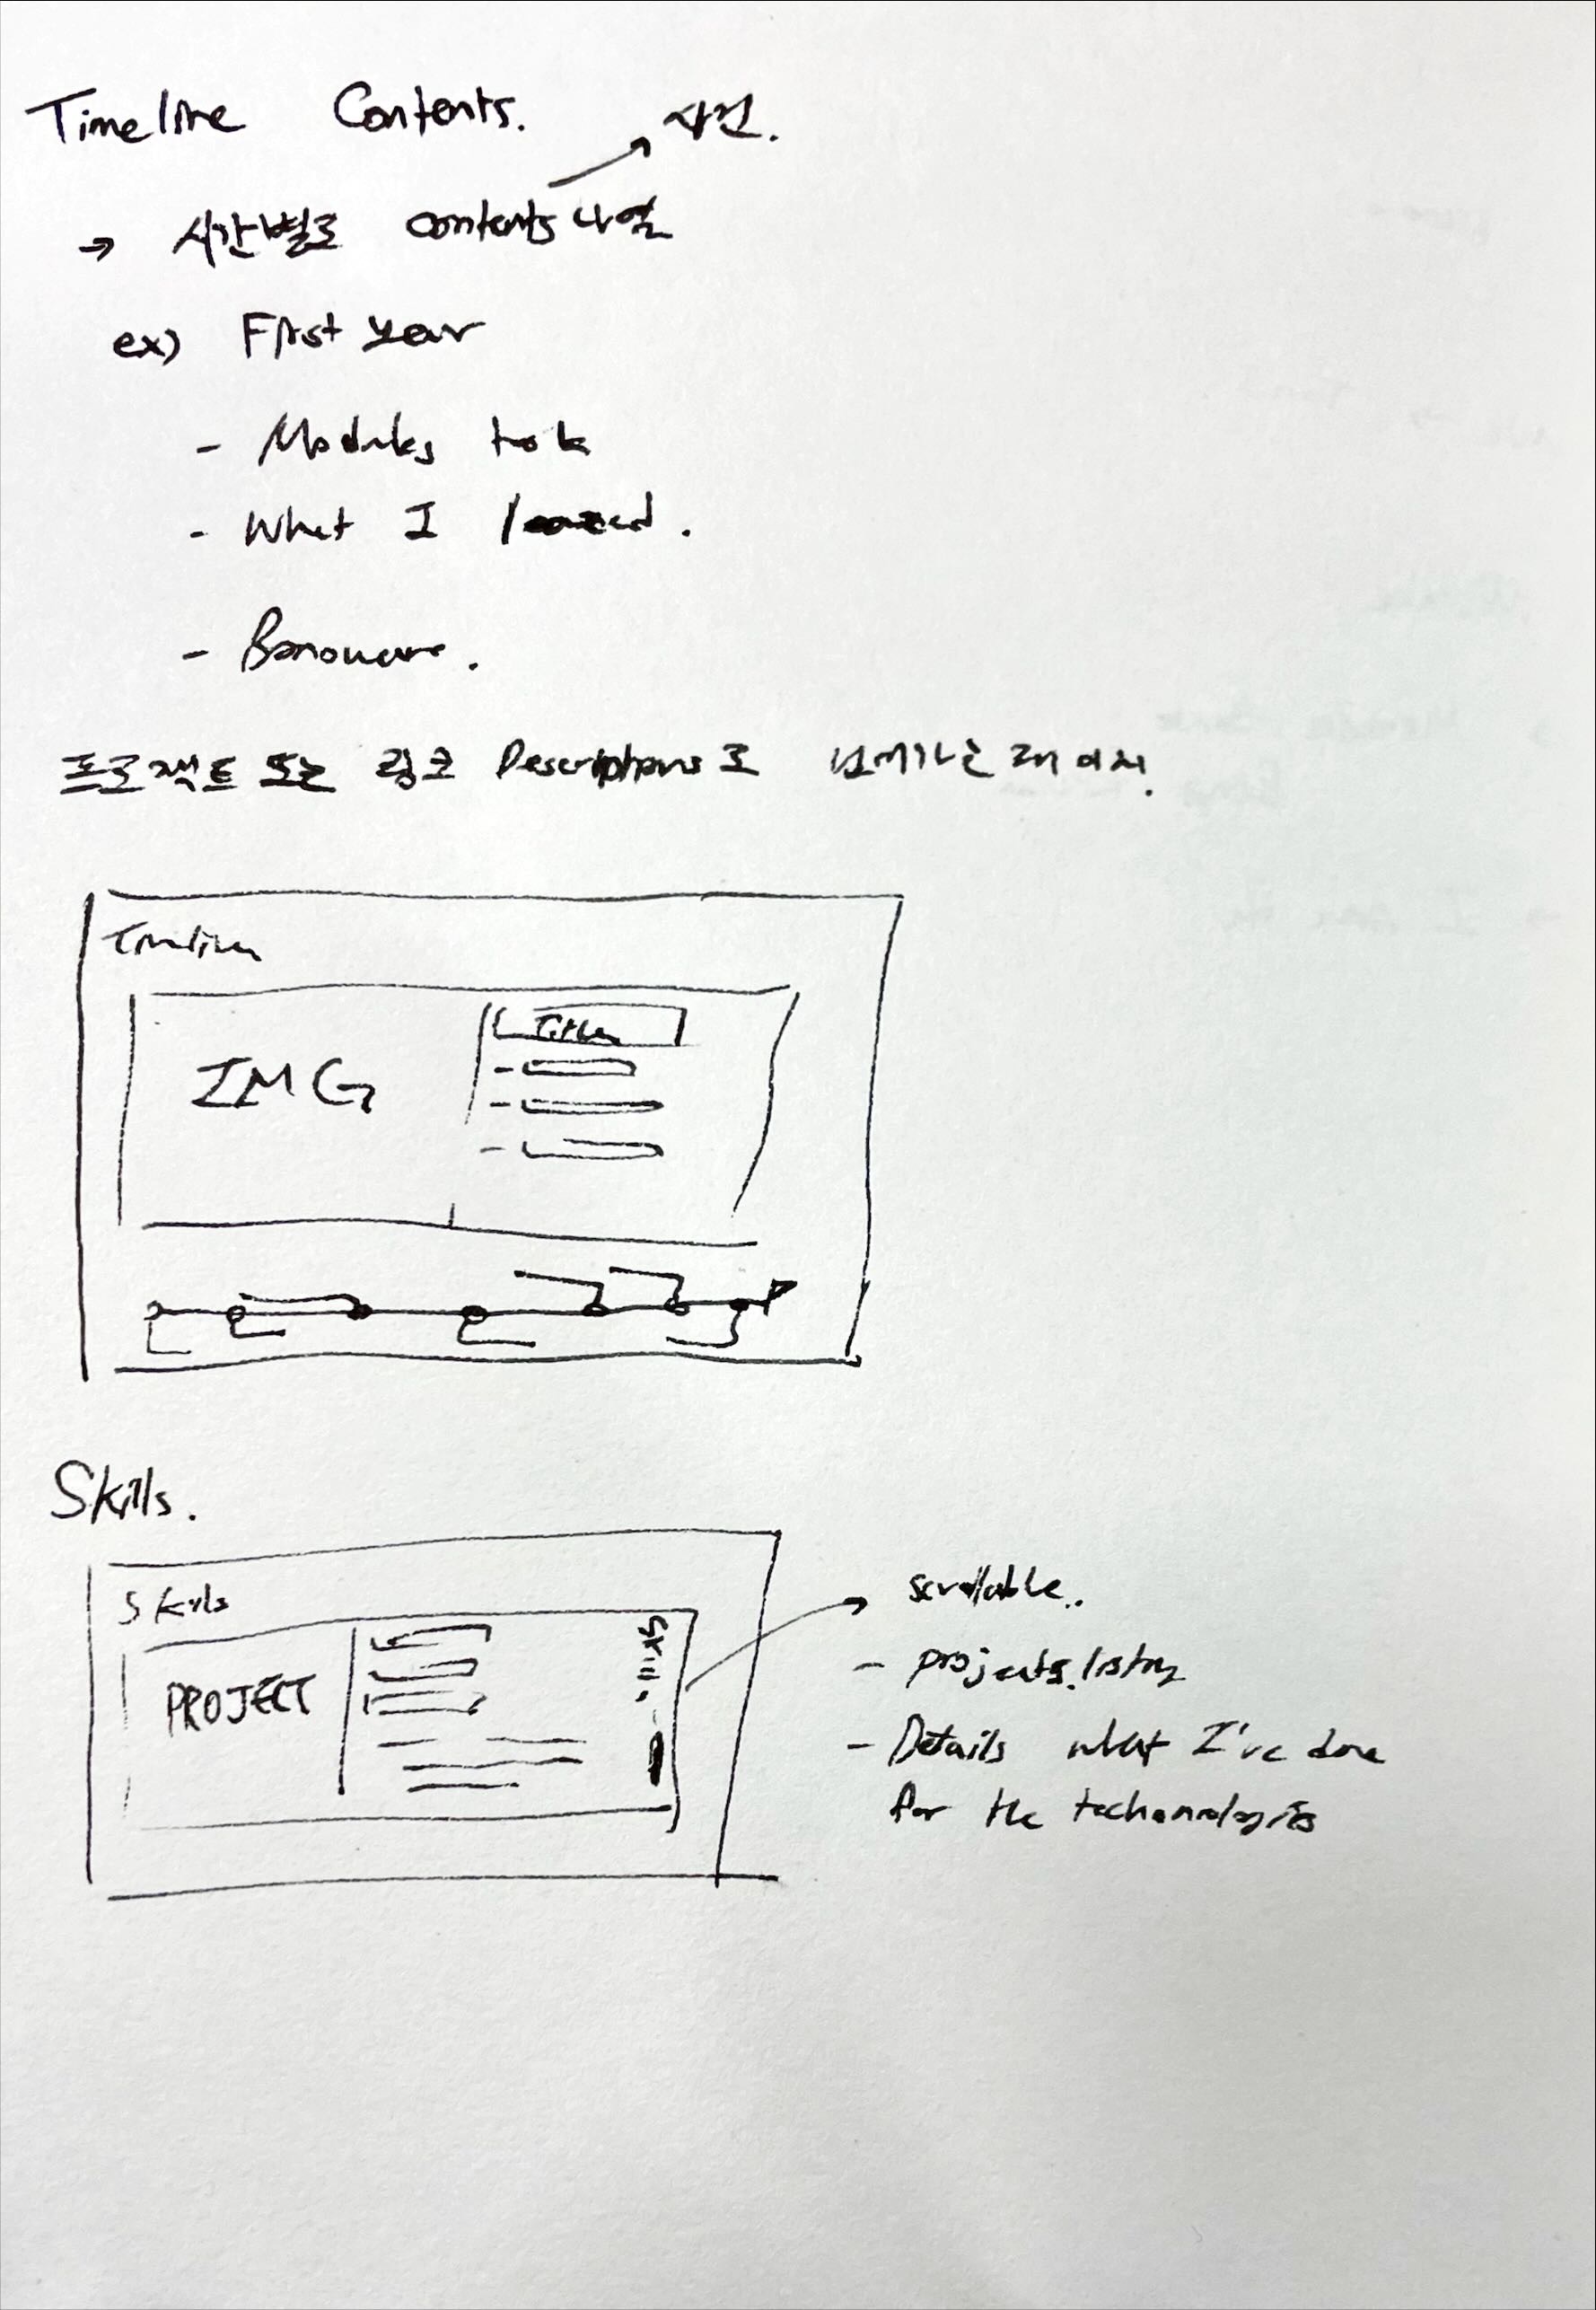 Timeline Contents.
사진.
→ 시간별로 contents 나열
ex) First year
- Modules took
- What I learned.
-
프로젝트 또는 링크 Descriptions로 넘어가는 페이지.
Timeline
IMG
Title
Skills.
Skills
PROJECT
Skills
scrollable..
- projects listing
- Details what I've done
for the techonologies